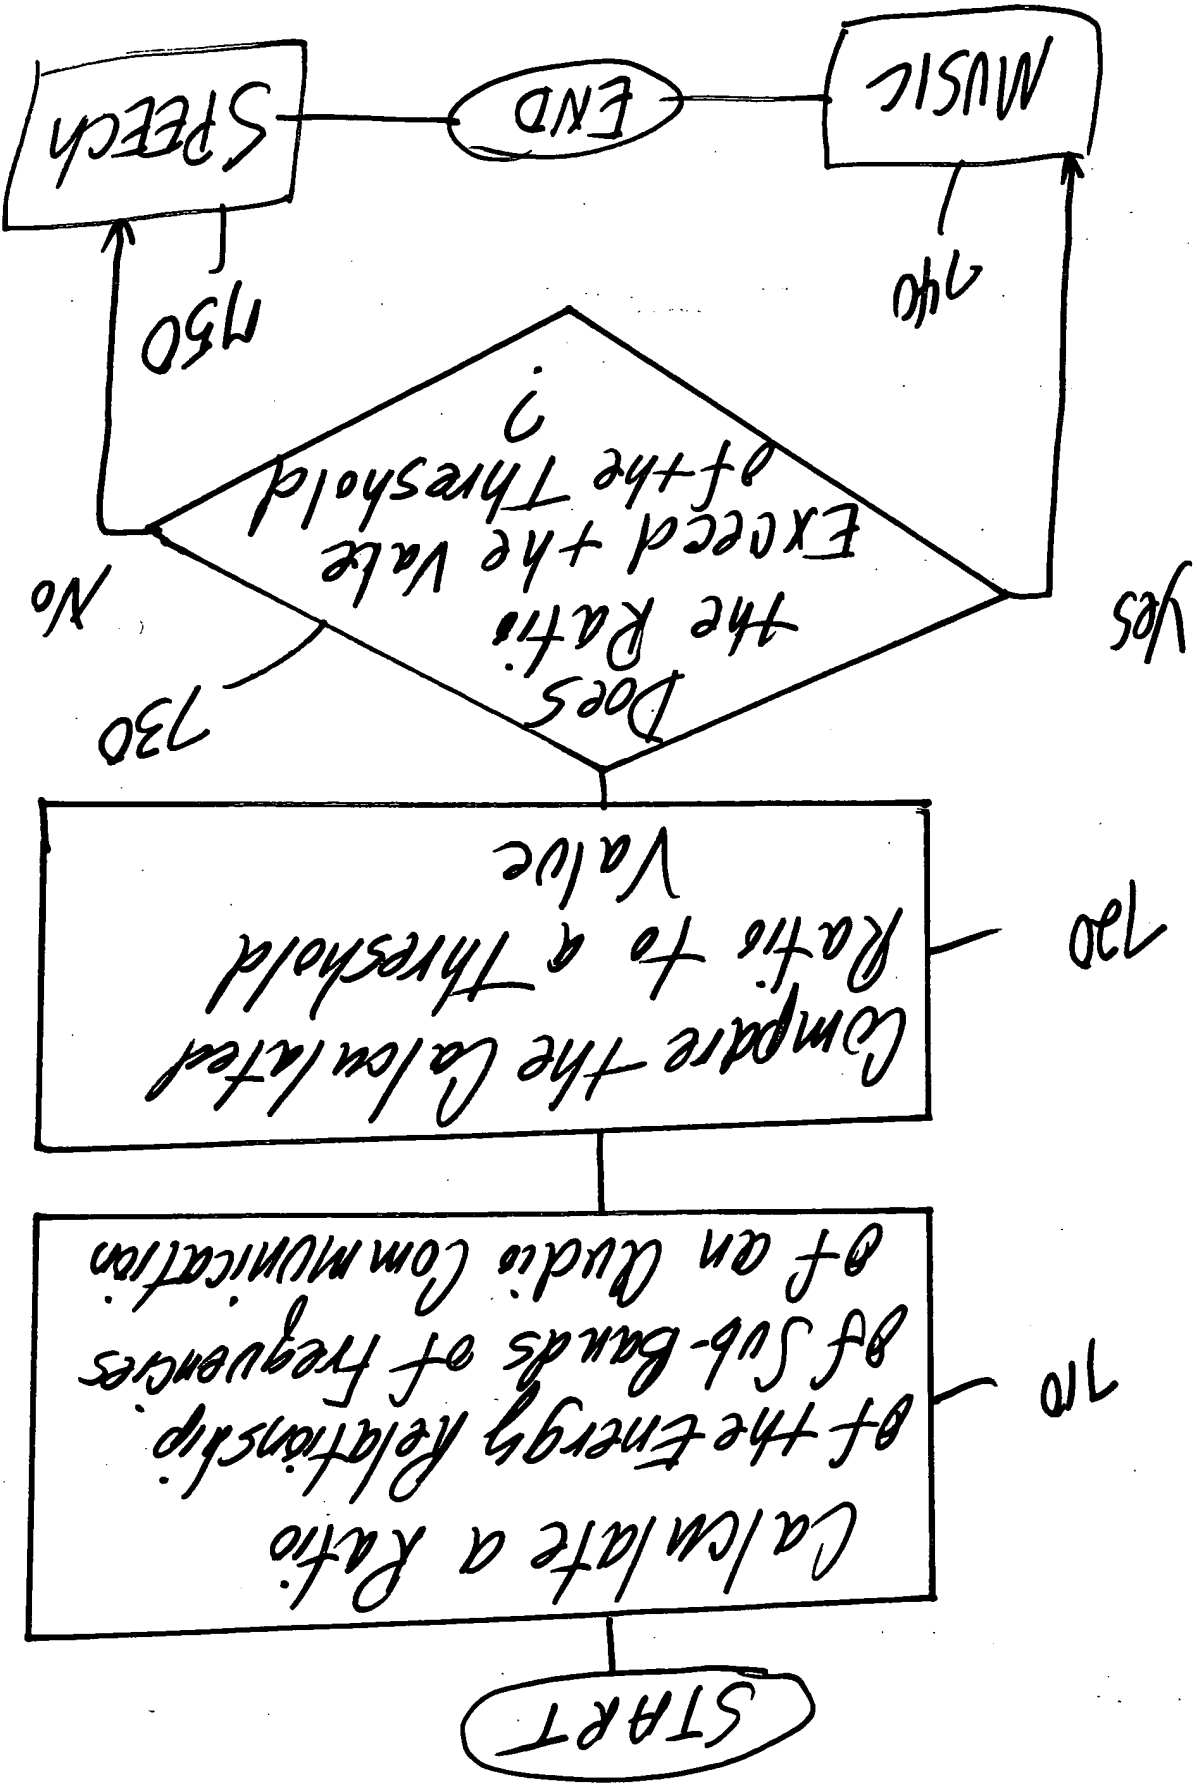 START
Calculate a Ratio
of the Energy Relationship
of Sub-Bands of Frequencies
of an Audio Communication
710
Compare the Calculated
Ratio to a Threshold
Value
720
Does
the Ratio
Exceed the Vale
of the Threshold
?
730
Yes
No
740
750
MUSIC
END
SPEECH